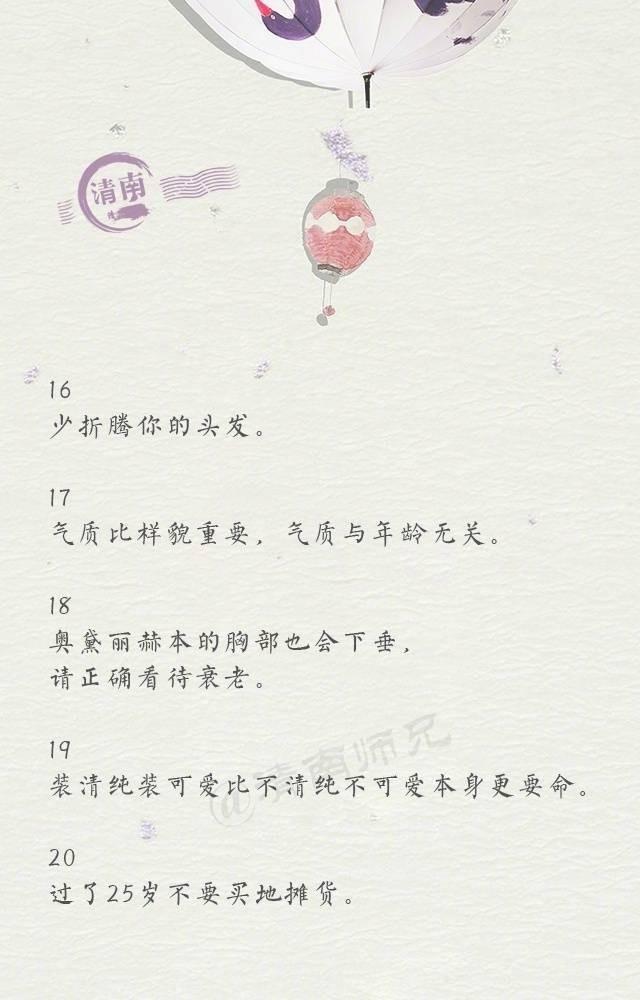 清南
16
少折腾你的头发。
17
气质比样貌重要，气质与年龄无关。
18
奥黛丽赫本的胸部也会下垂，
请正确看待衰老。
19
@清南师兄
装清纯装可爱比不清纯不可爱本身更要命。
20
过了25岁不要买地摊货。